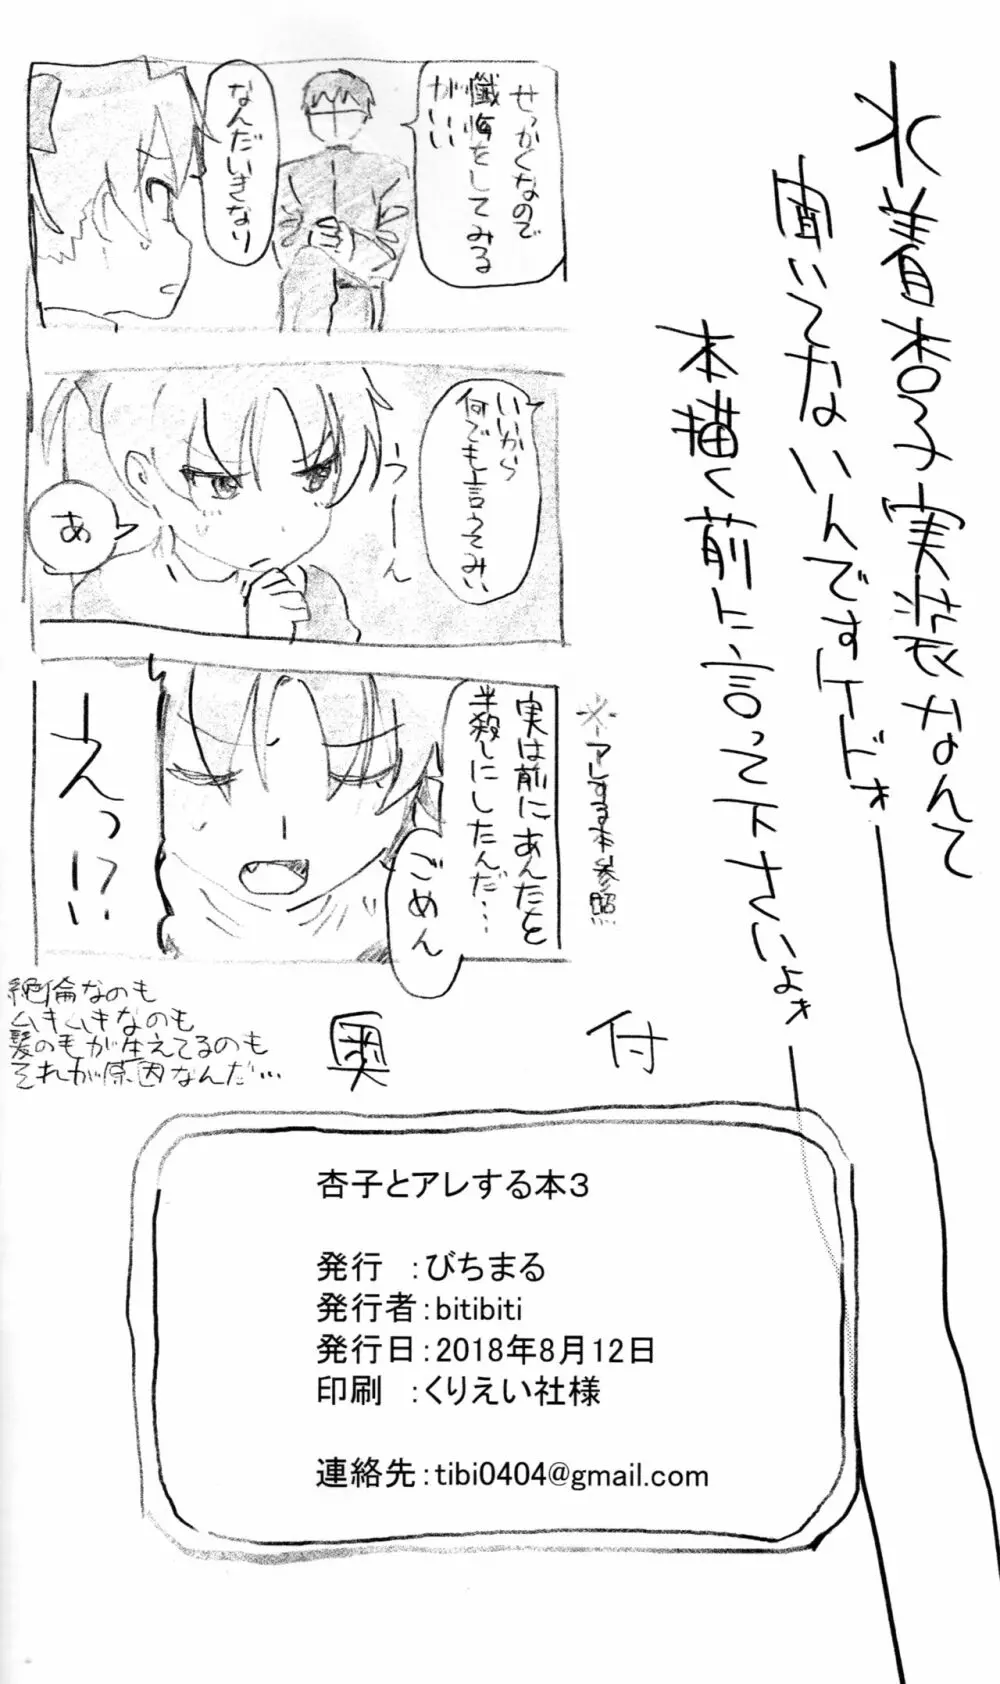 水着杏子実装なんて
聞いてないんですけドォ
本描く前に言って下さいよォ
せっかくなので
懺悔をしてみる
がいい
なんだいきなり
いいから
何でも言ってみい
うーーん
あ
※アレする本参照
実は前にあんたを
半殺しにしたんだ…
ごめん
えっ!?
絶倫なのも
ムキムキなのも
髪の毛が生えてるのも
それが原因なんだ…
奥付
杏子とアレする本3
発行 :びちまる
発行者:bitibiti
発行日:2018年8月12日
印刷 :くりえい社様
連絡先:tibi0404@gmail.com